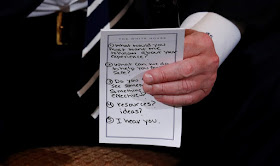 THE WHITE HOUSE
① What would you
most want me to
know about your
experience?
② What can we do
to help you feel
safe?
③ Do you
see some
something
effective?
④ resources?
ideas?
⑤ I hear you.